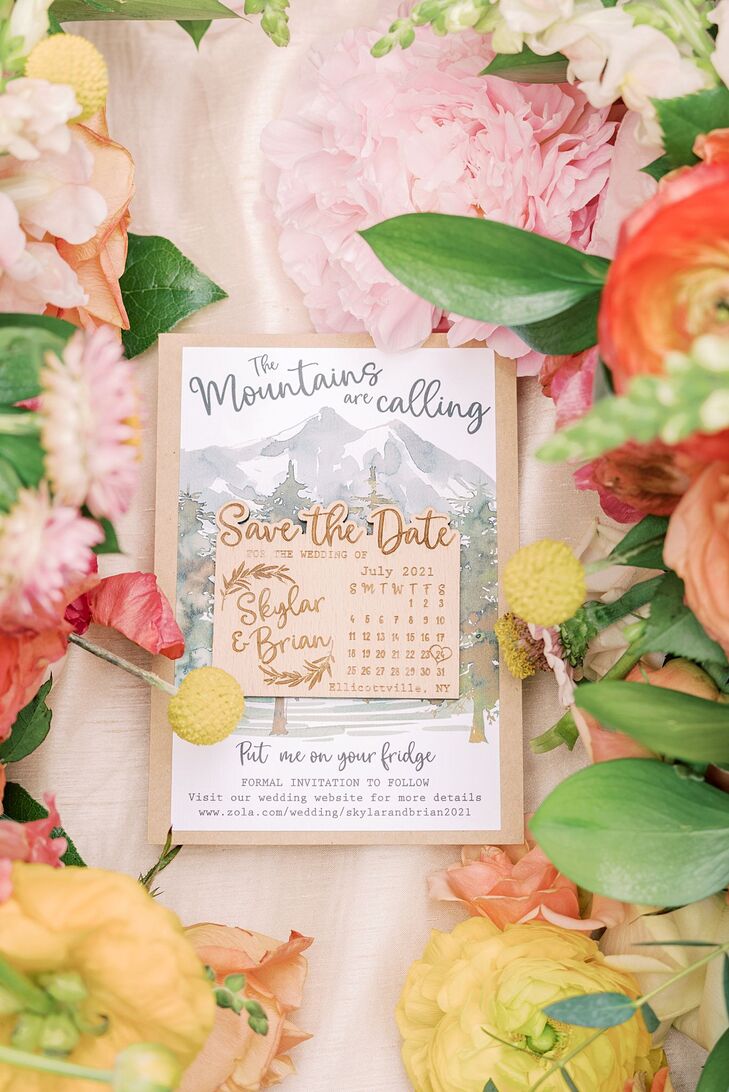 The
Mountains
are calling
Save the Date
FOR THE WEDDING OF
Skylar
& Brian
July 2021
S M T W T F S
1 2 3
4 5 6 7 8 9 10
11 12 13 14 15 16 17
18 19 20 21 22 23 24
25 26 27 28 29 30 31
Ellicottville, NY
Put me on your fridge
FORMAL INVITATION TO FOLLOW
Visit our wedding website for more details
www.zola.com/wedding/skylarandbrian2021